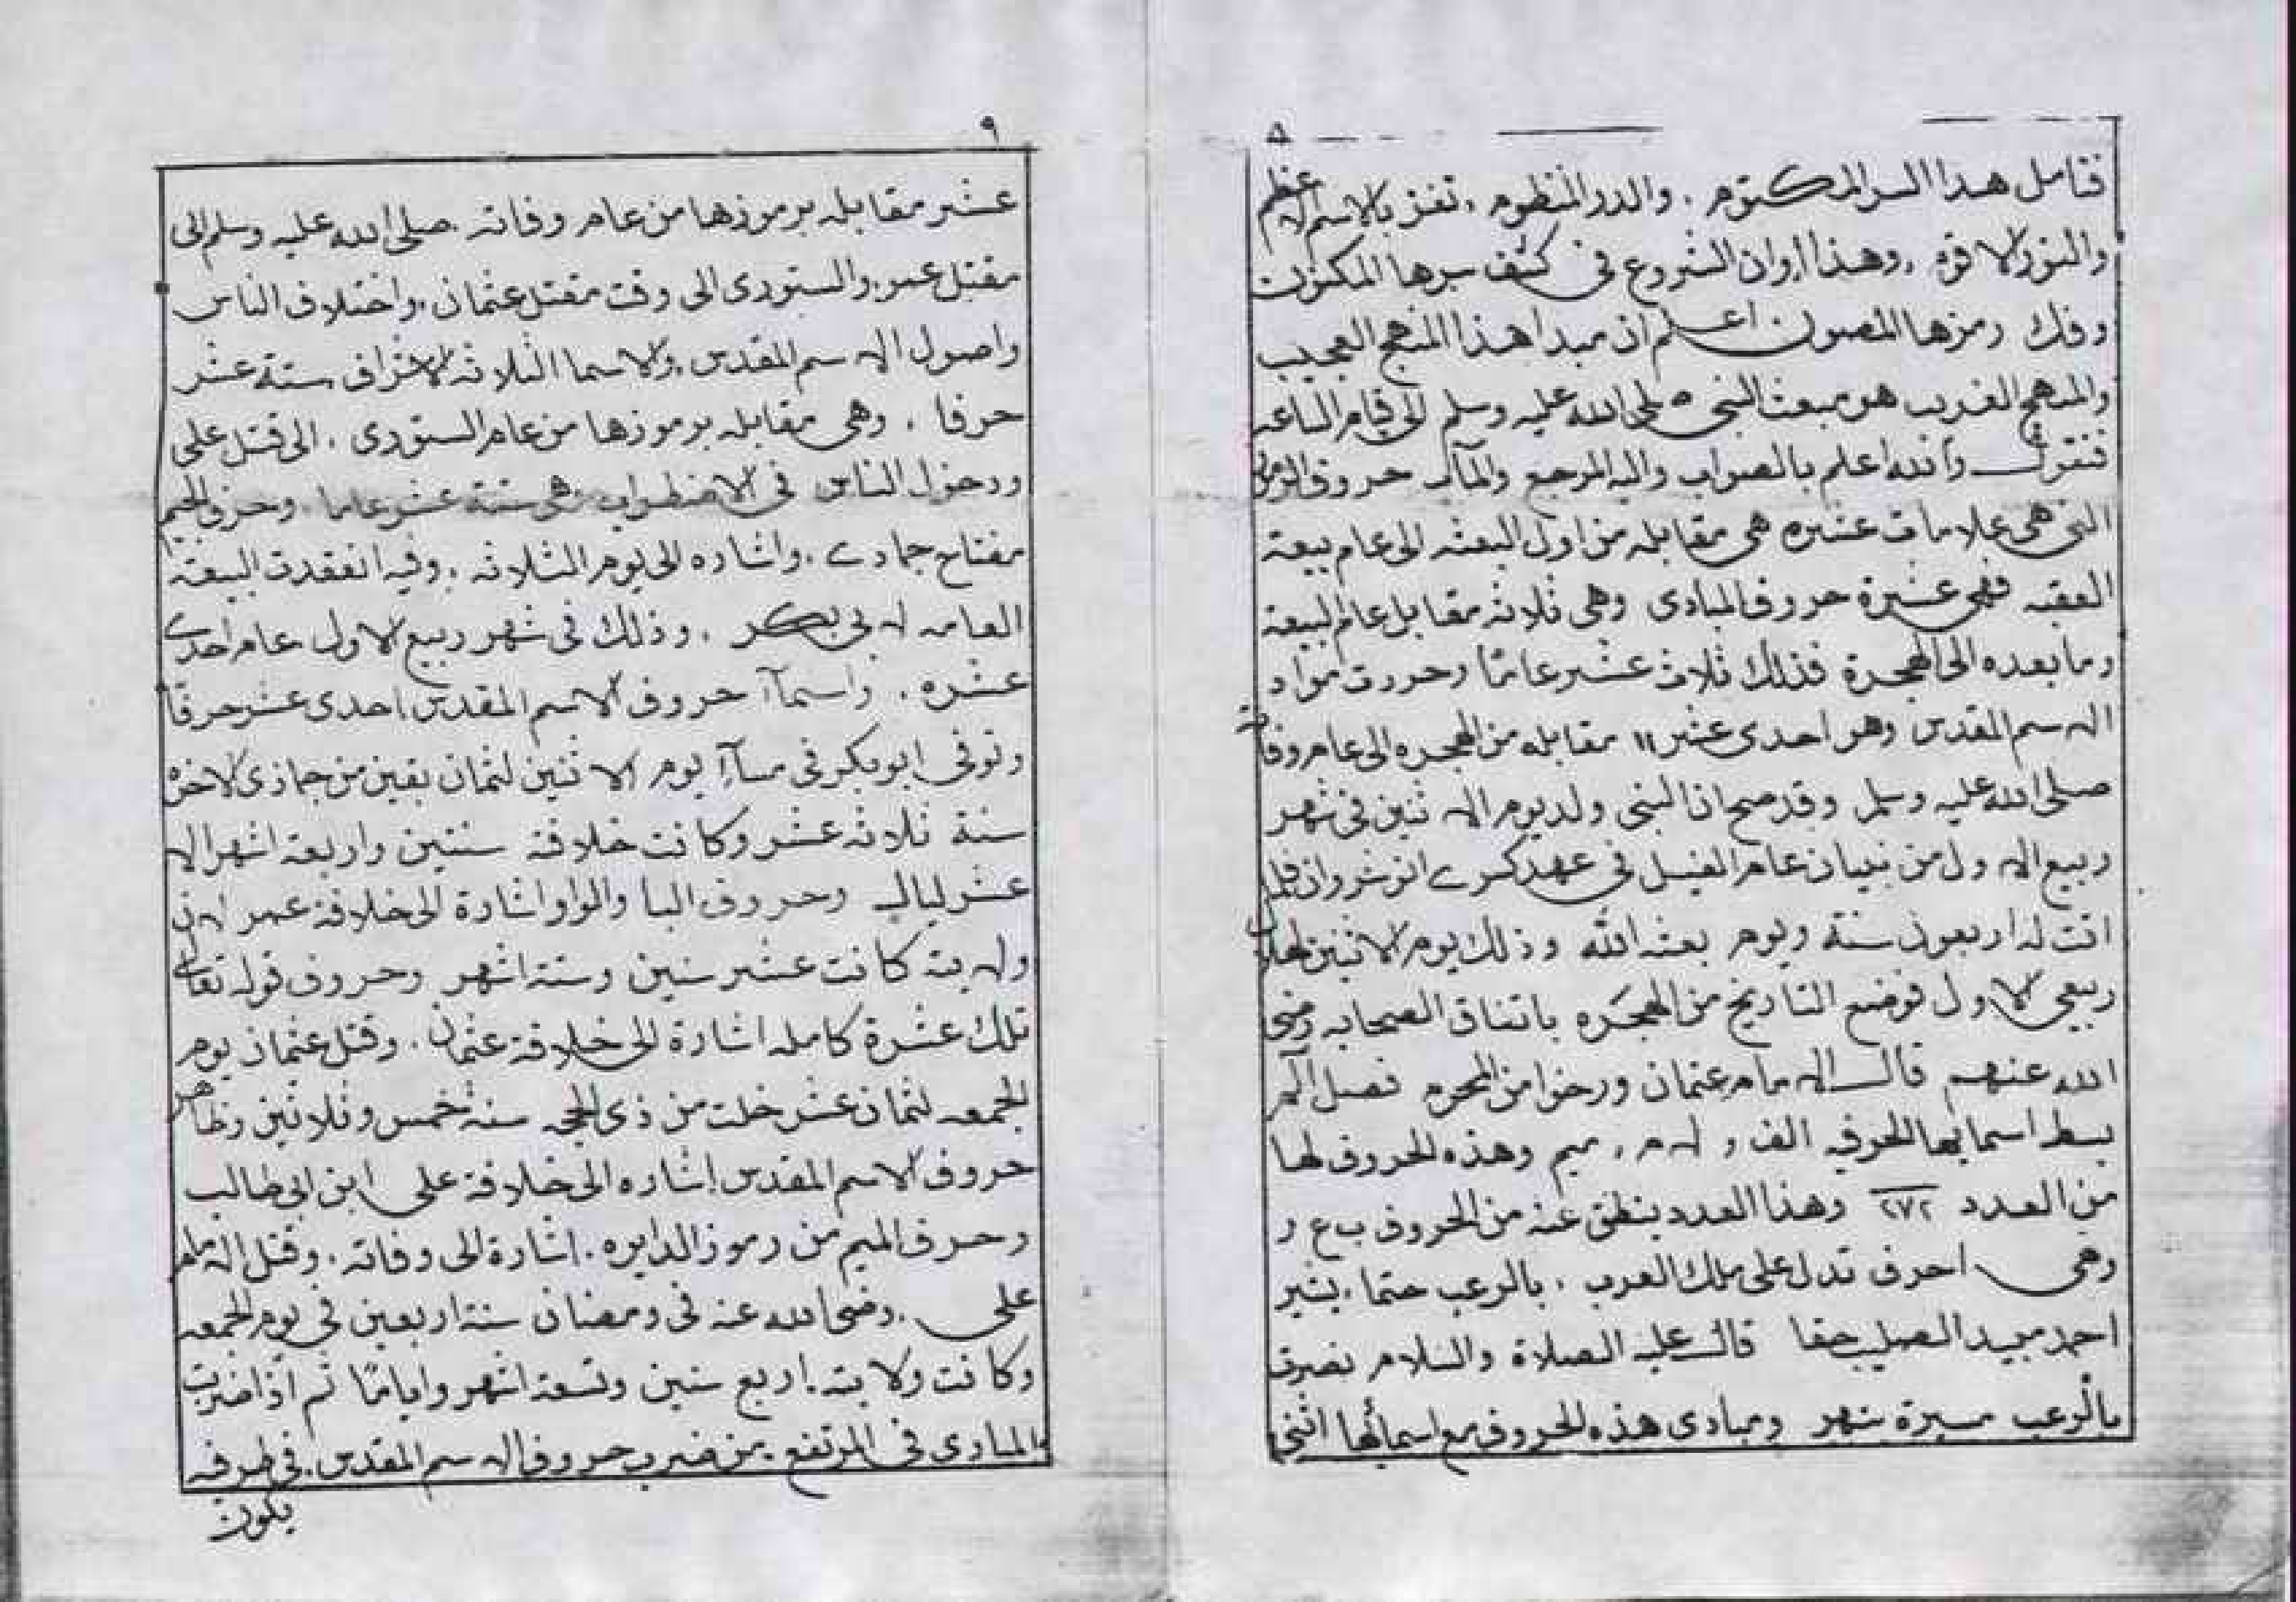 ٨
فتامل هذا السر المكتوم . والدر المنظوم . تفز بالاسم الاعظم
والنور الاقوم . وهذا اوان الشروع في كشف سرها المكنون
وفك رمزها المصون اعلم ان مبدا هذا المنهج العجيب
والمنهج الغريب هو مبعث النبي صلى الله عليه وسلم الى قيام الساعه
فنقول والله اعلم بالصواب واليه المرجع والمآب حروف الرمز
التي هي علامات عشره هي مقابله من اول البعثه الى عام بيعة
العقبه فهي عشرة حروف المبادى وهي ثلاثه مقابل عام البيعة
وما بعده الى الهجرة فذلك ثلاث عشر عامًا وحررت مواد
الاسم المقدس وهو احدى عشر ١١ مقابله من الهجره الى عام وفاته
صلى الله عليه وسلم وقد صح ان النبي ولد يوم الاثنين في شهر
ربيع الاول من نيسان عام الفيل في عهد كسرى انوشروان فلما
اتت له اربعون سنة ويوم بعثه الله وذلك يوم الاثنين
ربيع الاول فوضع التاريخ من الهجَره باتفاق الصحابه رضي
الله عنهم قال الامام عثمان ورخوا من المحرم فصل آلم
بسط اسمايها الحرفيه الف و لام , ميم وهذه الحروف لها
من العدد ٢٧٢ وهذا العدد ينطق عنه من الحروف ب ع ر
وهي احرف تدل على ملك العرب . بالرعب حتما . يشير
احمد مبيد الصليب حقا قال عليه الصلاة والسلام نصرت
بالرعب مسيرة شهر ومبادى هذه الحروف مع اسمائها اثنى
٩
عشر مقابله برموزها من عام وفاته . صلى الله عليه وسلم الى
مقتل عمر . والستورى الى وقت مقتل عثمان . واختلاف الناس
واصول الاسم المقدس . والاسما الثلاثه الاخراف ستة عشر
حرفا . وهي مقابله برموزها من عام الستورى . الى قتل على
ودخول الناس في الاضطراب هي ستة عشر عاما . وحرف الجيم
مفتاح جمادى . واشاره الى يوم الثلاثه . وفيه انعقدت البيعة
العامه لابي بكر . وذلك في شهر ربيع الاول عام احدى
عشره . واسمآ حروف الاسم المقدس احدى عشر حرفًا
وتوفى ابو بكر في مسآء يوم الاثنين لثمان بقين من جماذى الاخره
سنة ثلاثه عشر وكانت خلافة سنتين واربعه اشهر الا
عشر ليال وحروف اليا والواو اشارة الى خلافة عمر لان
ولايته كانت عشر سنين وستة اشهر وحروف قوله تعالى
تلك عشرة كامله اشارة الى خلافة عثمان . وقتل عثمان يوم
الجمعه لثمان عشر خلت من ذي الحجه سنة خمس وثلاثين وظاهر
حروف الاسم المقدس اشاره الى خلافة على ابن ابي طالب
وحرف الميم من رموز الدايره . اشارة الى وفاته . وقتل الامام
على . رضى الله عنه في رمضان سنة اربعين في يوم الجمعه
وكانت ولايته . اربع سنين وتسعة اشهر وايامًا ثم اذا ضربت
المبادى في المرتفع . من ضرب حروف الاسم المقدس . في طرفه
يكون